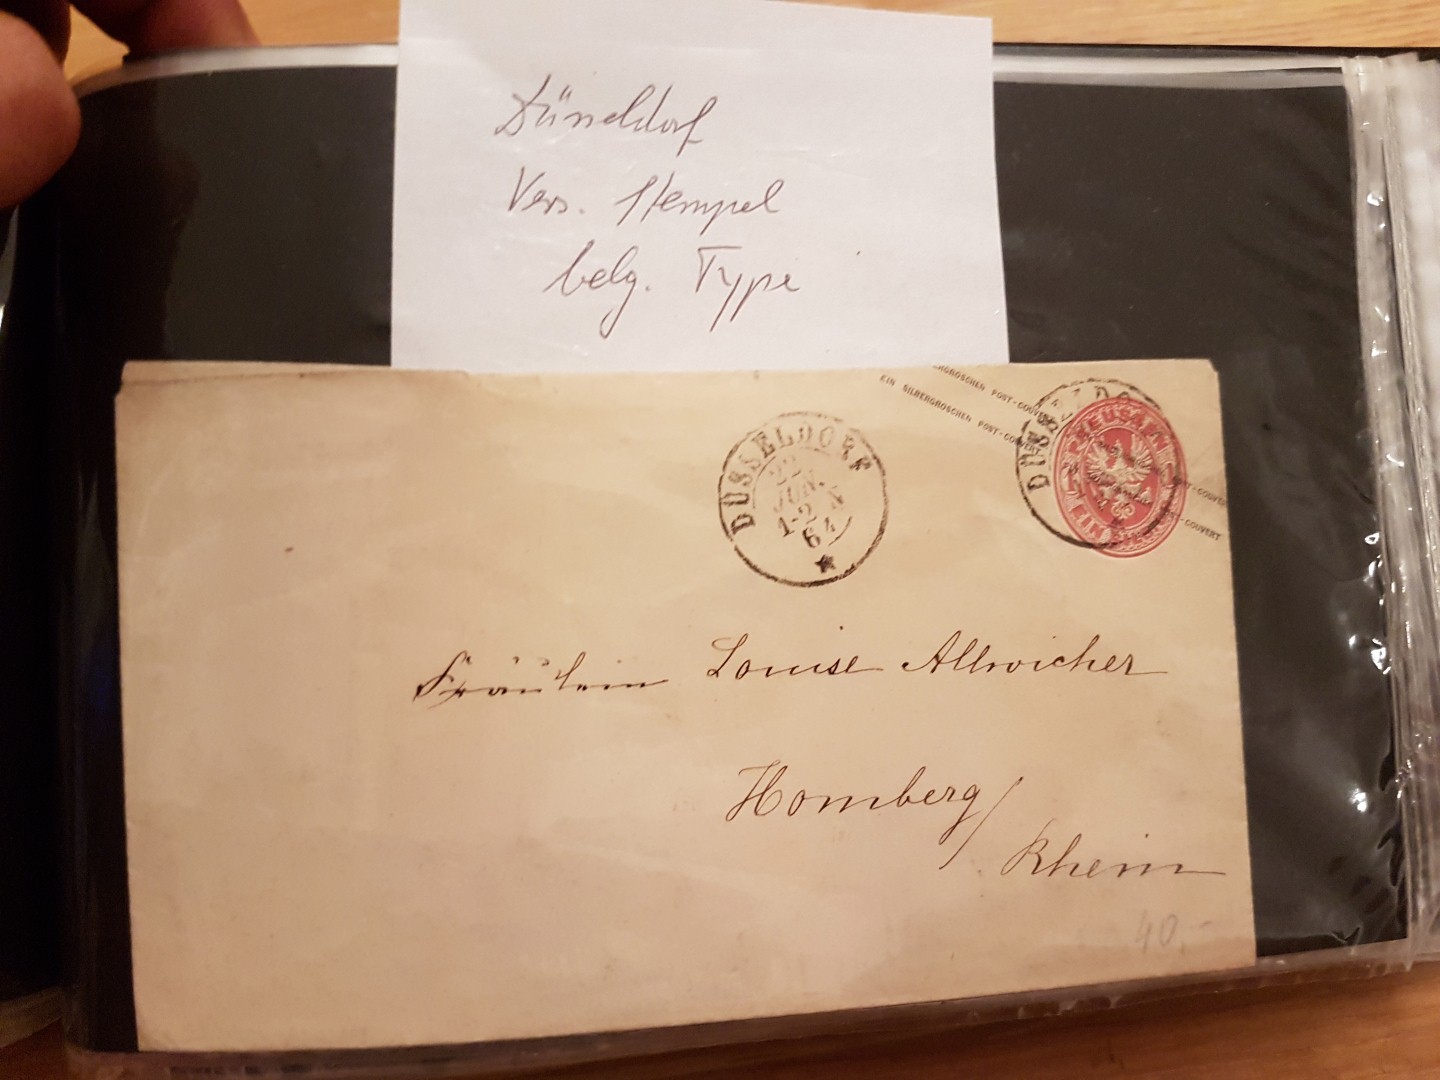 Düsseldorf
Vers. Stempel
belg. Type
ERGROSCHEN POST-COUVERT
EIN SILBERGROSCHEN POST-COUVERT
DÜSSELDORF
22
JUN.
1-2 N
64
DÜSSELDO
PREUSSEN
EIN SILBERGR
POST-COUVERT
Fräulein Louise Allwicher
Homberg/
Rhein
40,-